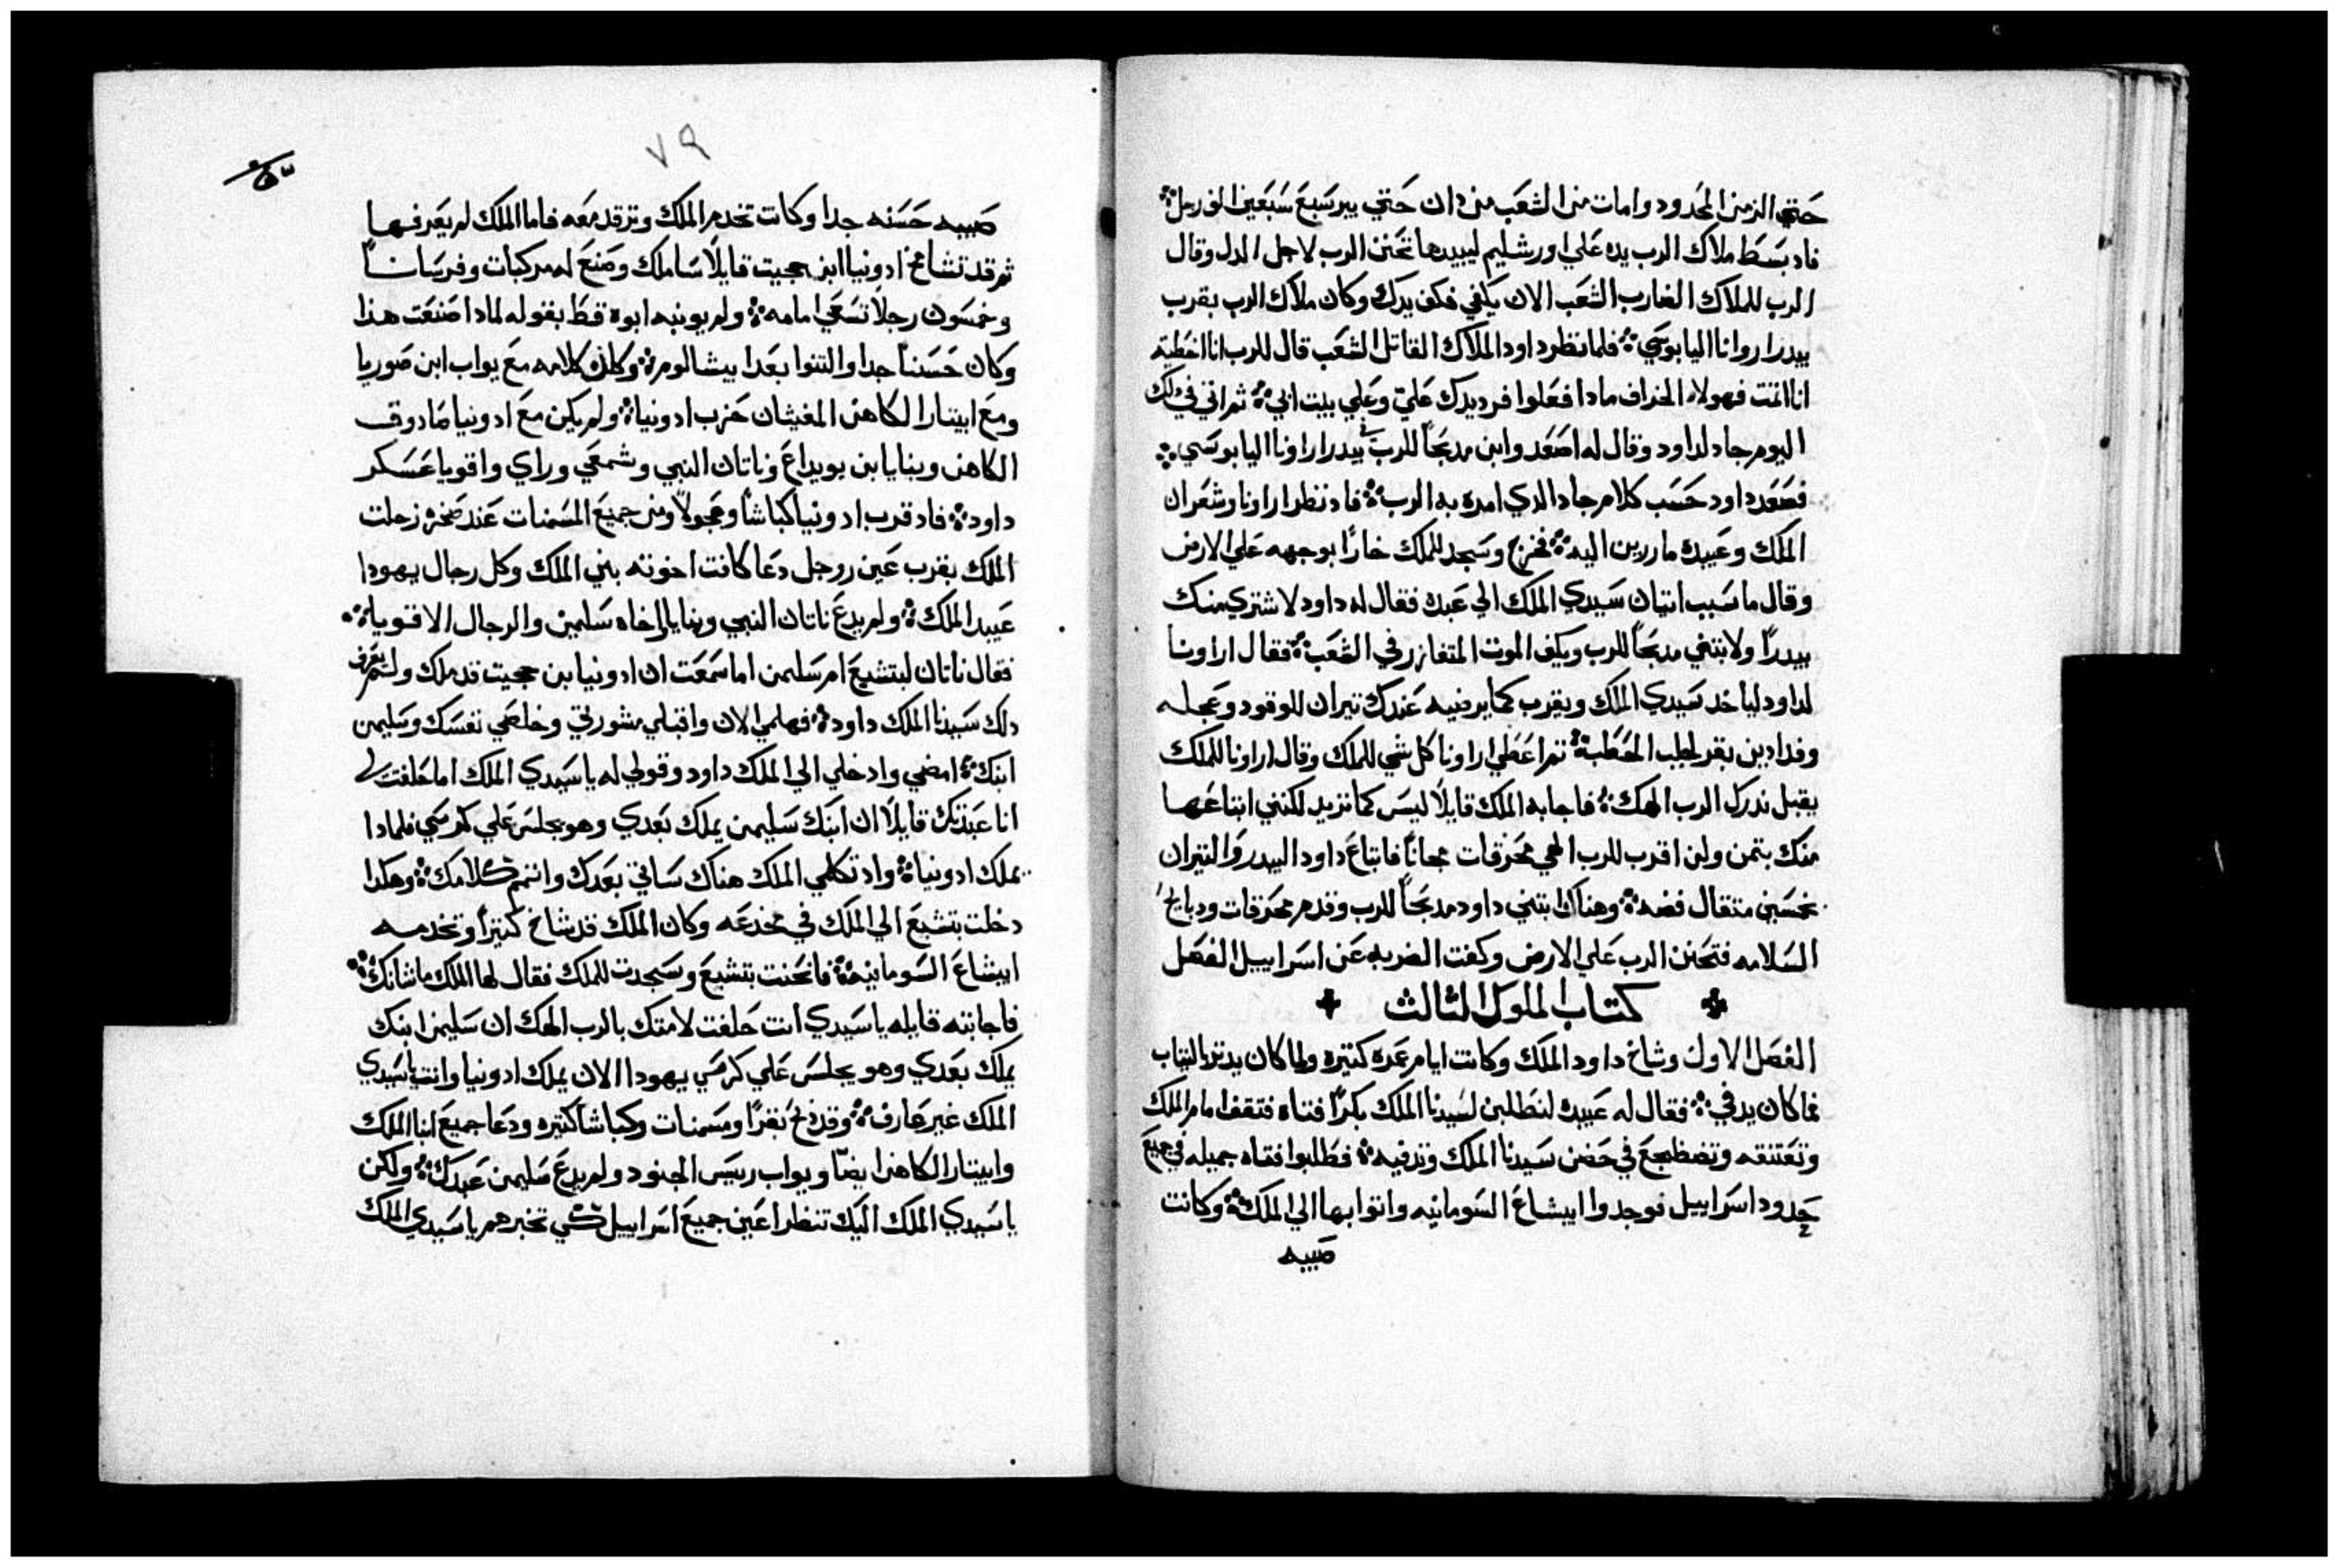 حتي الزمن المحدود وامات من الشعب من دان حتي بير سبع سبعين الف رجل
فاد بسط ملاك الرب يده علي اورشليم ليبيدها تحنن الرب لاجل الدل وقال
الرب للملاك الضارب الشعب الان يكفي فكف يدك وكان ملاك الرب بقرب
بيدر اروانا اليابوسي فلما نظر داود الملاك القاتل الشعب قال للرب انا اخطيت
انا اتمت فهولاء الخراف مادا فعلوا فرد يدك علي وعلي بيت ابي ثم اتي في دلك
اليوم جاد لداود وقال له اصعد وابن مدبحاً للرب في بيدر اراونا اليابوسي
فصعد داود حسب كلام جاد الدي امره به الرب فاد نظر اراونا وشعر ان
الملك وعبيده ماردين اليه فخرج وسجد للملك خارًا بوجهه علي الارض
وقال ما سبب اتيان سيدي الملك الي عبده فقال له داود لاشتري منك
بيدرًا ولابتني مدبحاً للرب ويكف الموت المتغازر في الشعب فقال اراونا
لداود لياخد سيدي الملك ويقرب كما يرضيه عندك تيران للوقود وعجله
وفدادين بقر لحطب الحطبة تم اعطي اراونا كل شي للملك وقال اراونا للملك
يقبل ندرك الرب الهك فاجابه الملك قايلًا ليس كما تريد لكنني ابتاعها
منك بتمن ولن اقرب للرب الهي محرقات مجاناً فابتاع داود البيدر والتيران
بخمسين متقال فضه وهناك ابتني داود مدبحاً للرب وقدم محرقات ودبايح
السلامه فتحنن الرب علي الارض وكفت الضربه عن اسراييل الفصل
كتاب الملوك الثالث
الفصل الاول وشاخ داود الملك وكانت ايام عمره كتيره ولما كان يدتر بالتياب
فما كان يدفي فقال له عبيده لنطلبن لسيدنا الملك بكرًا فتاه فتقف امام الملك
وتعتنقه وتضطجع في حضن سيدنا الملك وتدفيه فطلبوا فتاه جميله في جميع
حدود اسراييل فوجدوا ابيشاع السومانيه واتوا بها الي الملك وكانت
صبيه
٧٩
صبيه حسنه جدا وكانت تخدم الملك وترقد معه فاما الملك لم يعرفها
ثم قد تشامخ ادونيا ابن حجيت قايلًا ساملك وصنع له مركبات وفرساناً
وخمسون رجلًا تسعي امامه ولم يونبه ابوه قط بقوله لمادا صنعت هدا
وكان حسناً جدا والتنوا بعد ابيشالوم وكان كلامه مع يواب ابن صوريا
ومع ابيتار الكاهن المغيثان حزب ادونيا ولم يكن مع ادونيا صادوق
الكاهن وبنايا ابن يويداع وناتان النبي وشمعي وراي واقويا عسكر
داود فاد قرب ادونيا كباشاً وعجولًا ومن جميع المسمنات عند صخره زحلت
الملك بقرب عين روجل دعا كافت اخوته بني الملك وكل رجال يهودا
عبيد الملك ولم يدع ناتان النبي وبنايا اخاه سليمن والرجال الاقويا
فقال ناتان لبتشبع ام سليمن اما سمعت ان ادونيا بن حجيت قد ملك ولم يعرف
دلك سيدنا الملك داود فهلمي الان واقبلي مشورتي وخلصي نفسك وسليمن
ابنك امضي وادخلي الي الملك داود وقولي له يا سيدي الملك اما حلفت لي
انا عبدتك قايلًا ان ابنك سليمن يملك بعدي وهو يجلس علي كرسي فلمادا
يملك ادونيا واد تكلمي الملك هناك ساتي بعدك واتمم كلامك وهكدا
دخلت بتشبع الي الملك في مخدعه وكان الملك قد شاخ كتيرًا وتخدمه
ابيشاع السومانيه فانحنت بتشبع وسجدت للملك فقال لها الملك ما شانك
فاجابته قايله يا سيدي انت حلفت لامتك بالرب الهك ان سليمن ابنك
يملك بعدي وهو يجلس علي كرسي يهودا الان يملك ادونيا وانت يا سيدي
الملك غير عارف وقد دبح بقرًا ومسمنات وكباشاً كتيره ودعا جميع ابنا الملك
وابيتار الكاهن ايضاً ويواب رييس الجنود ولم يدع سليمن عبدك ولكن
يا سيدي الملك اليك تنظر اعين جميع اسراييل كي تخبرهم يا سيدي الملك